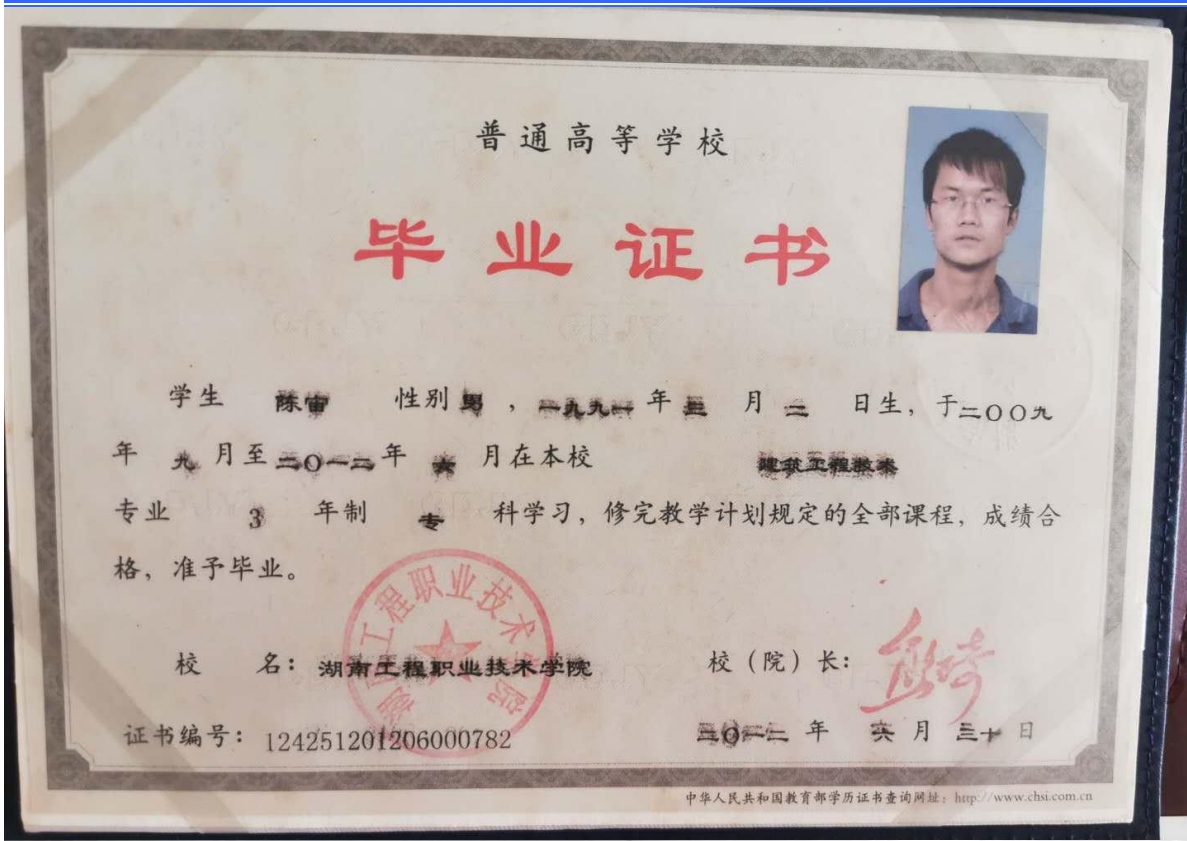 普通高等学校
毕业证书
学生 陈宙 性别 男 ，一九九一 年 三 月 二 日生，于二〇〇九
年 九 月至 二〇一二 年 六 月在本校 建筑工程技术
专业 3 年制 专 科学习，修完教学计划规定的全部课程，成绩合
格，准予毕业。
湖南工程职业技术学院
校 名：湖南工程职业技术学院 校（院）长：
证书编号：124251201206000782 二〇一二 年 六 月 三十 日
中华人民共和国教育部学历证书查询网址：http://www.chsi.com.cn